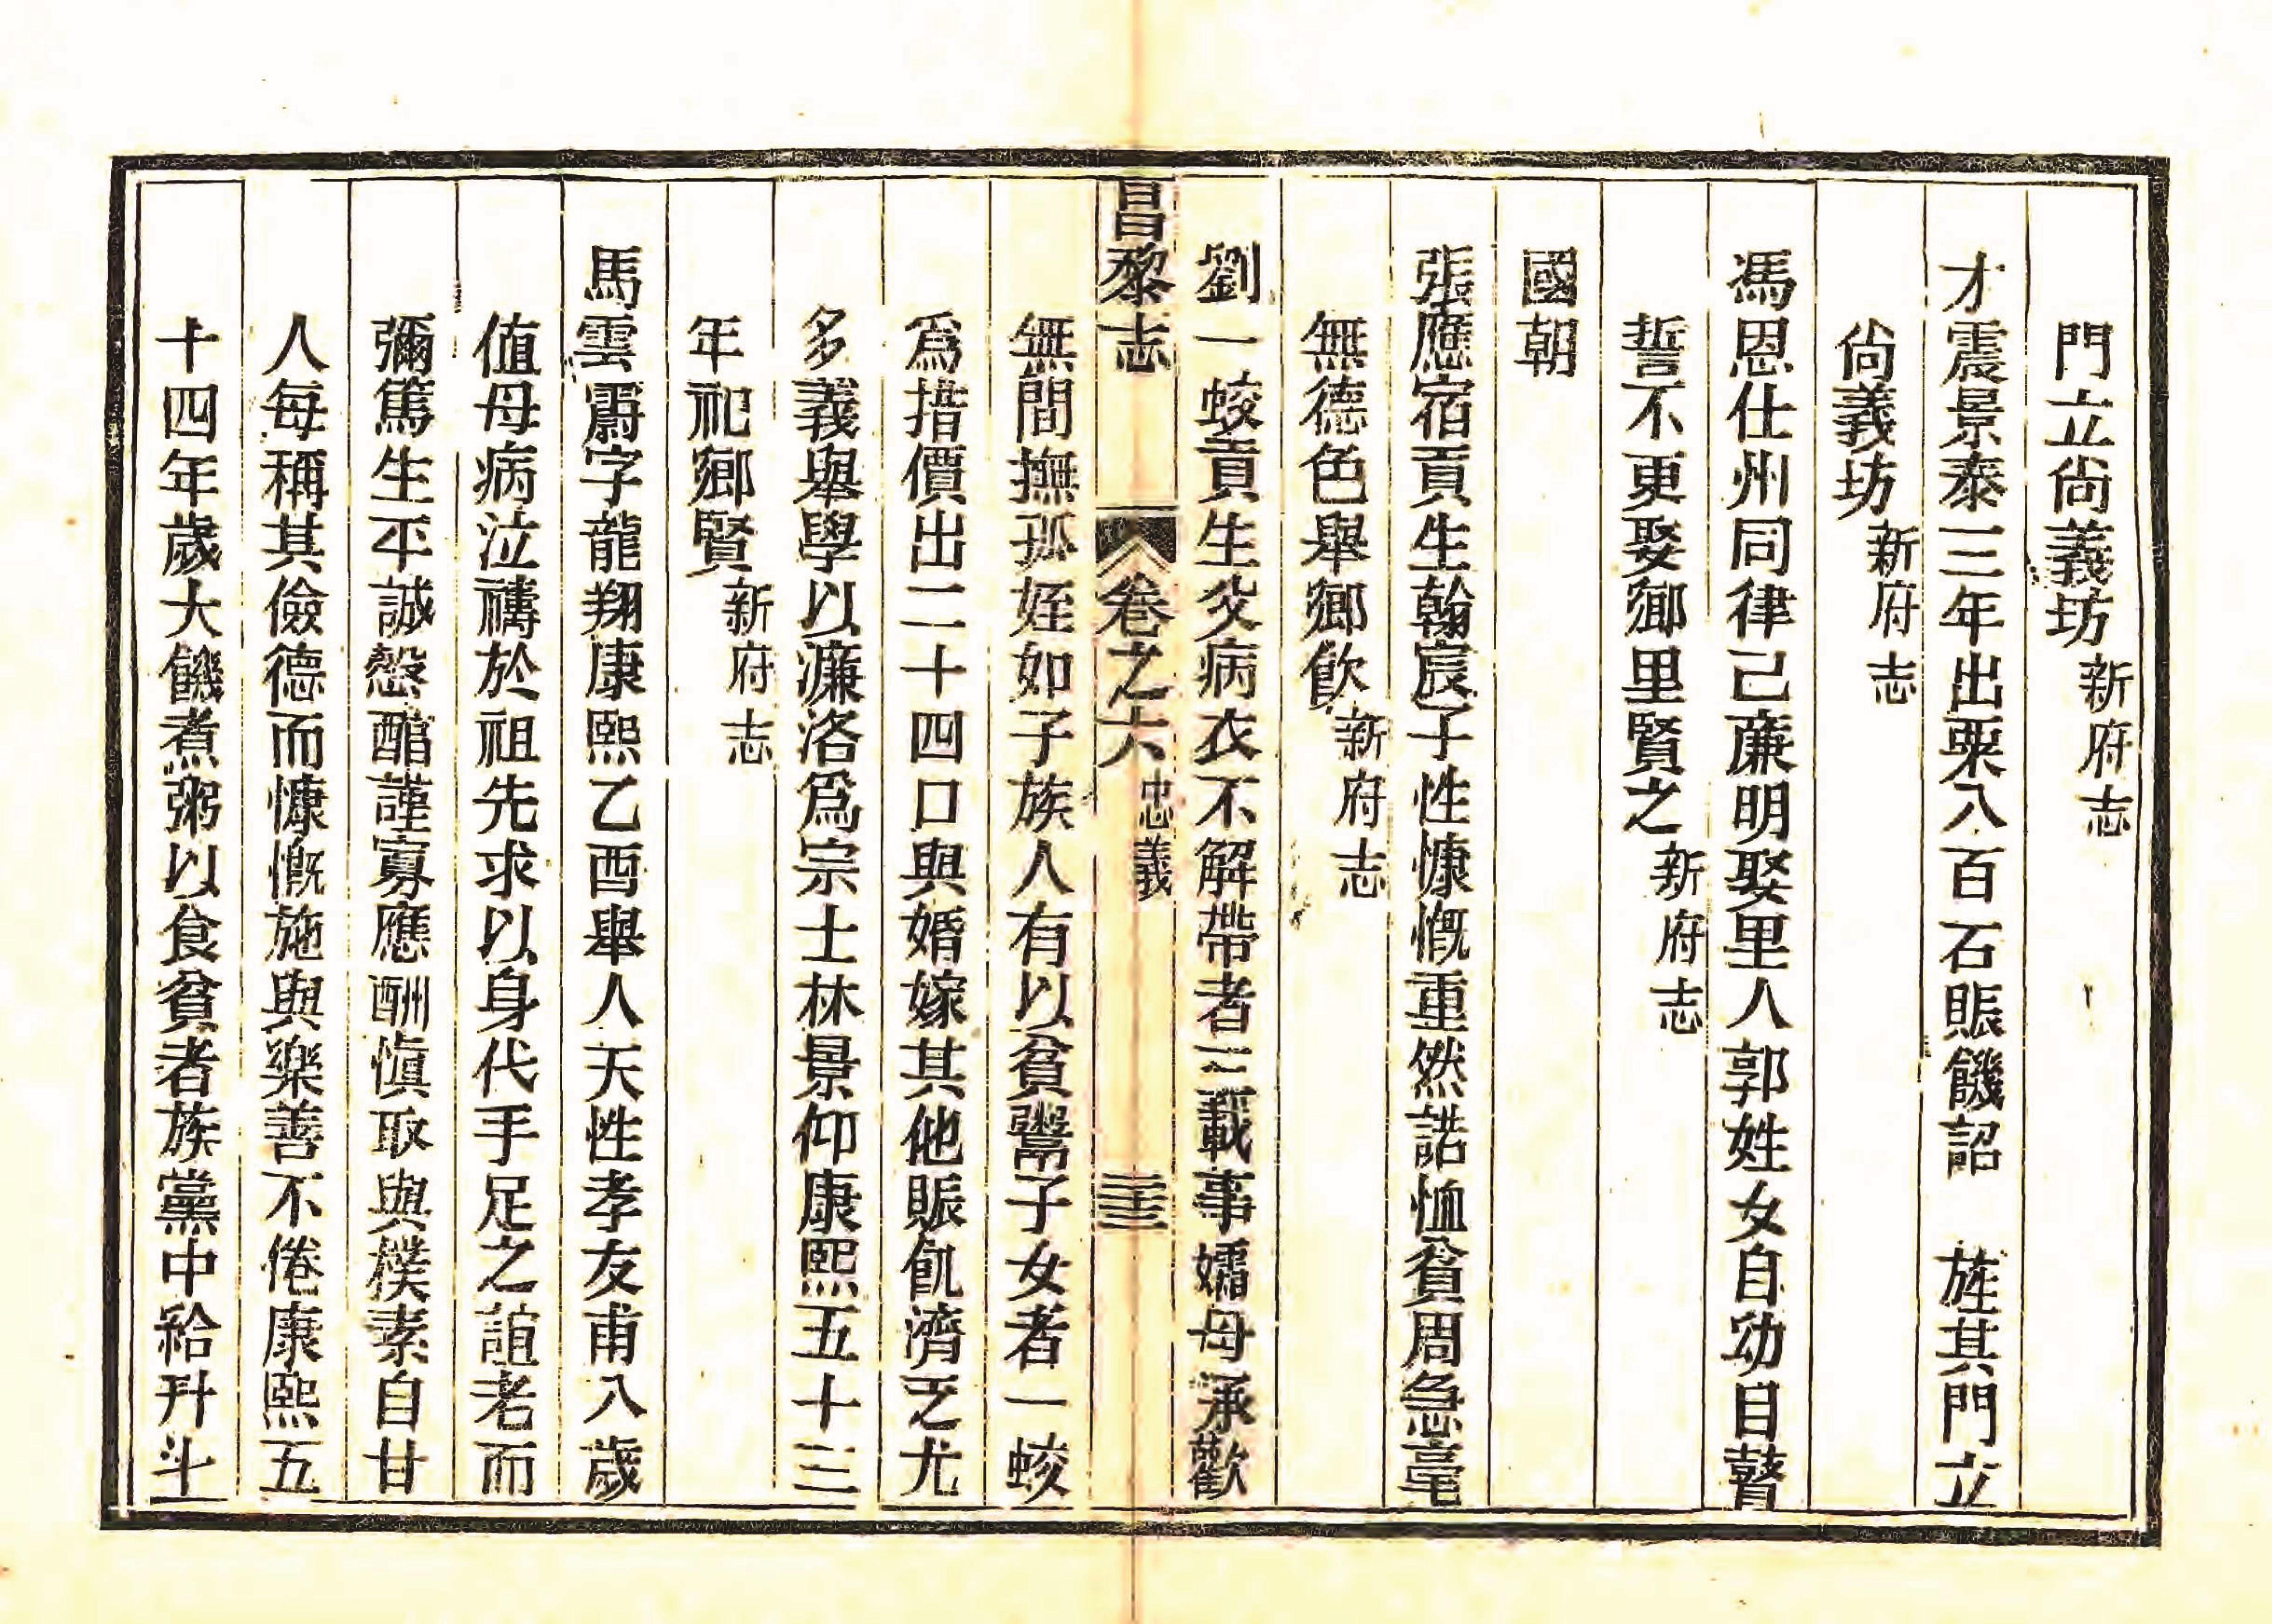 門立尙義坊新府志
才震景泰三年出粟八百石賑饑詔　旌其門立
尙義坊新府志
馮恩仕州同律己廉明娶里人郭姓女自幼目瞽
誓不更娶鄉里賢之新府志
國朝
張應宿貢生翰宸子性慷慨重然諾恤貧周急毫
無德色舉鄉飮新府志
劉一蛟貢生父病衣不解帶者三載事孀母承歡
昌黎志　卷之六忠義　三十三
無間撫孤姪如子族人有以貧鬻子女者一蛟
爲措價出二十四口與婚嫁其他賑飢濟乏尤
多義舉學以濂洛爲宗士林景仰康熙五十三
年祀鄉賢新府志
馬雲翯字龍翔康熙乙酉舉人天性孝友甫八歲
値母病泣禱於祖先求以身代手足之誼老而
彌篤生平誠慤醞謹寡應酬愼取與樸素自甘
人每稱其儉德而慷慨施與樂善不倦康熙五
十四年歲大饑煮粥以食貧者族黨中給升斗